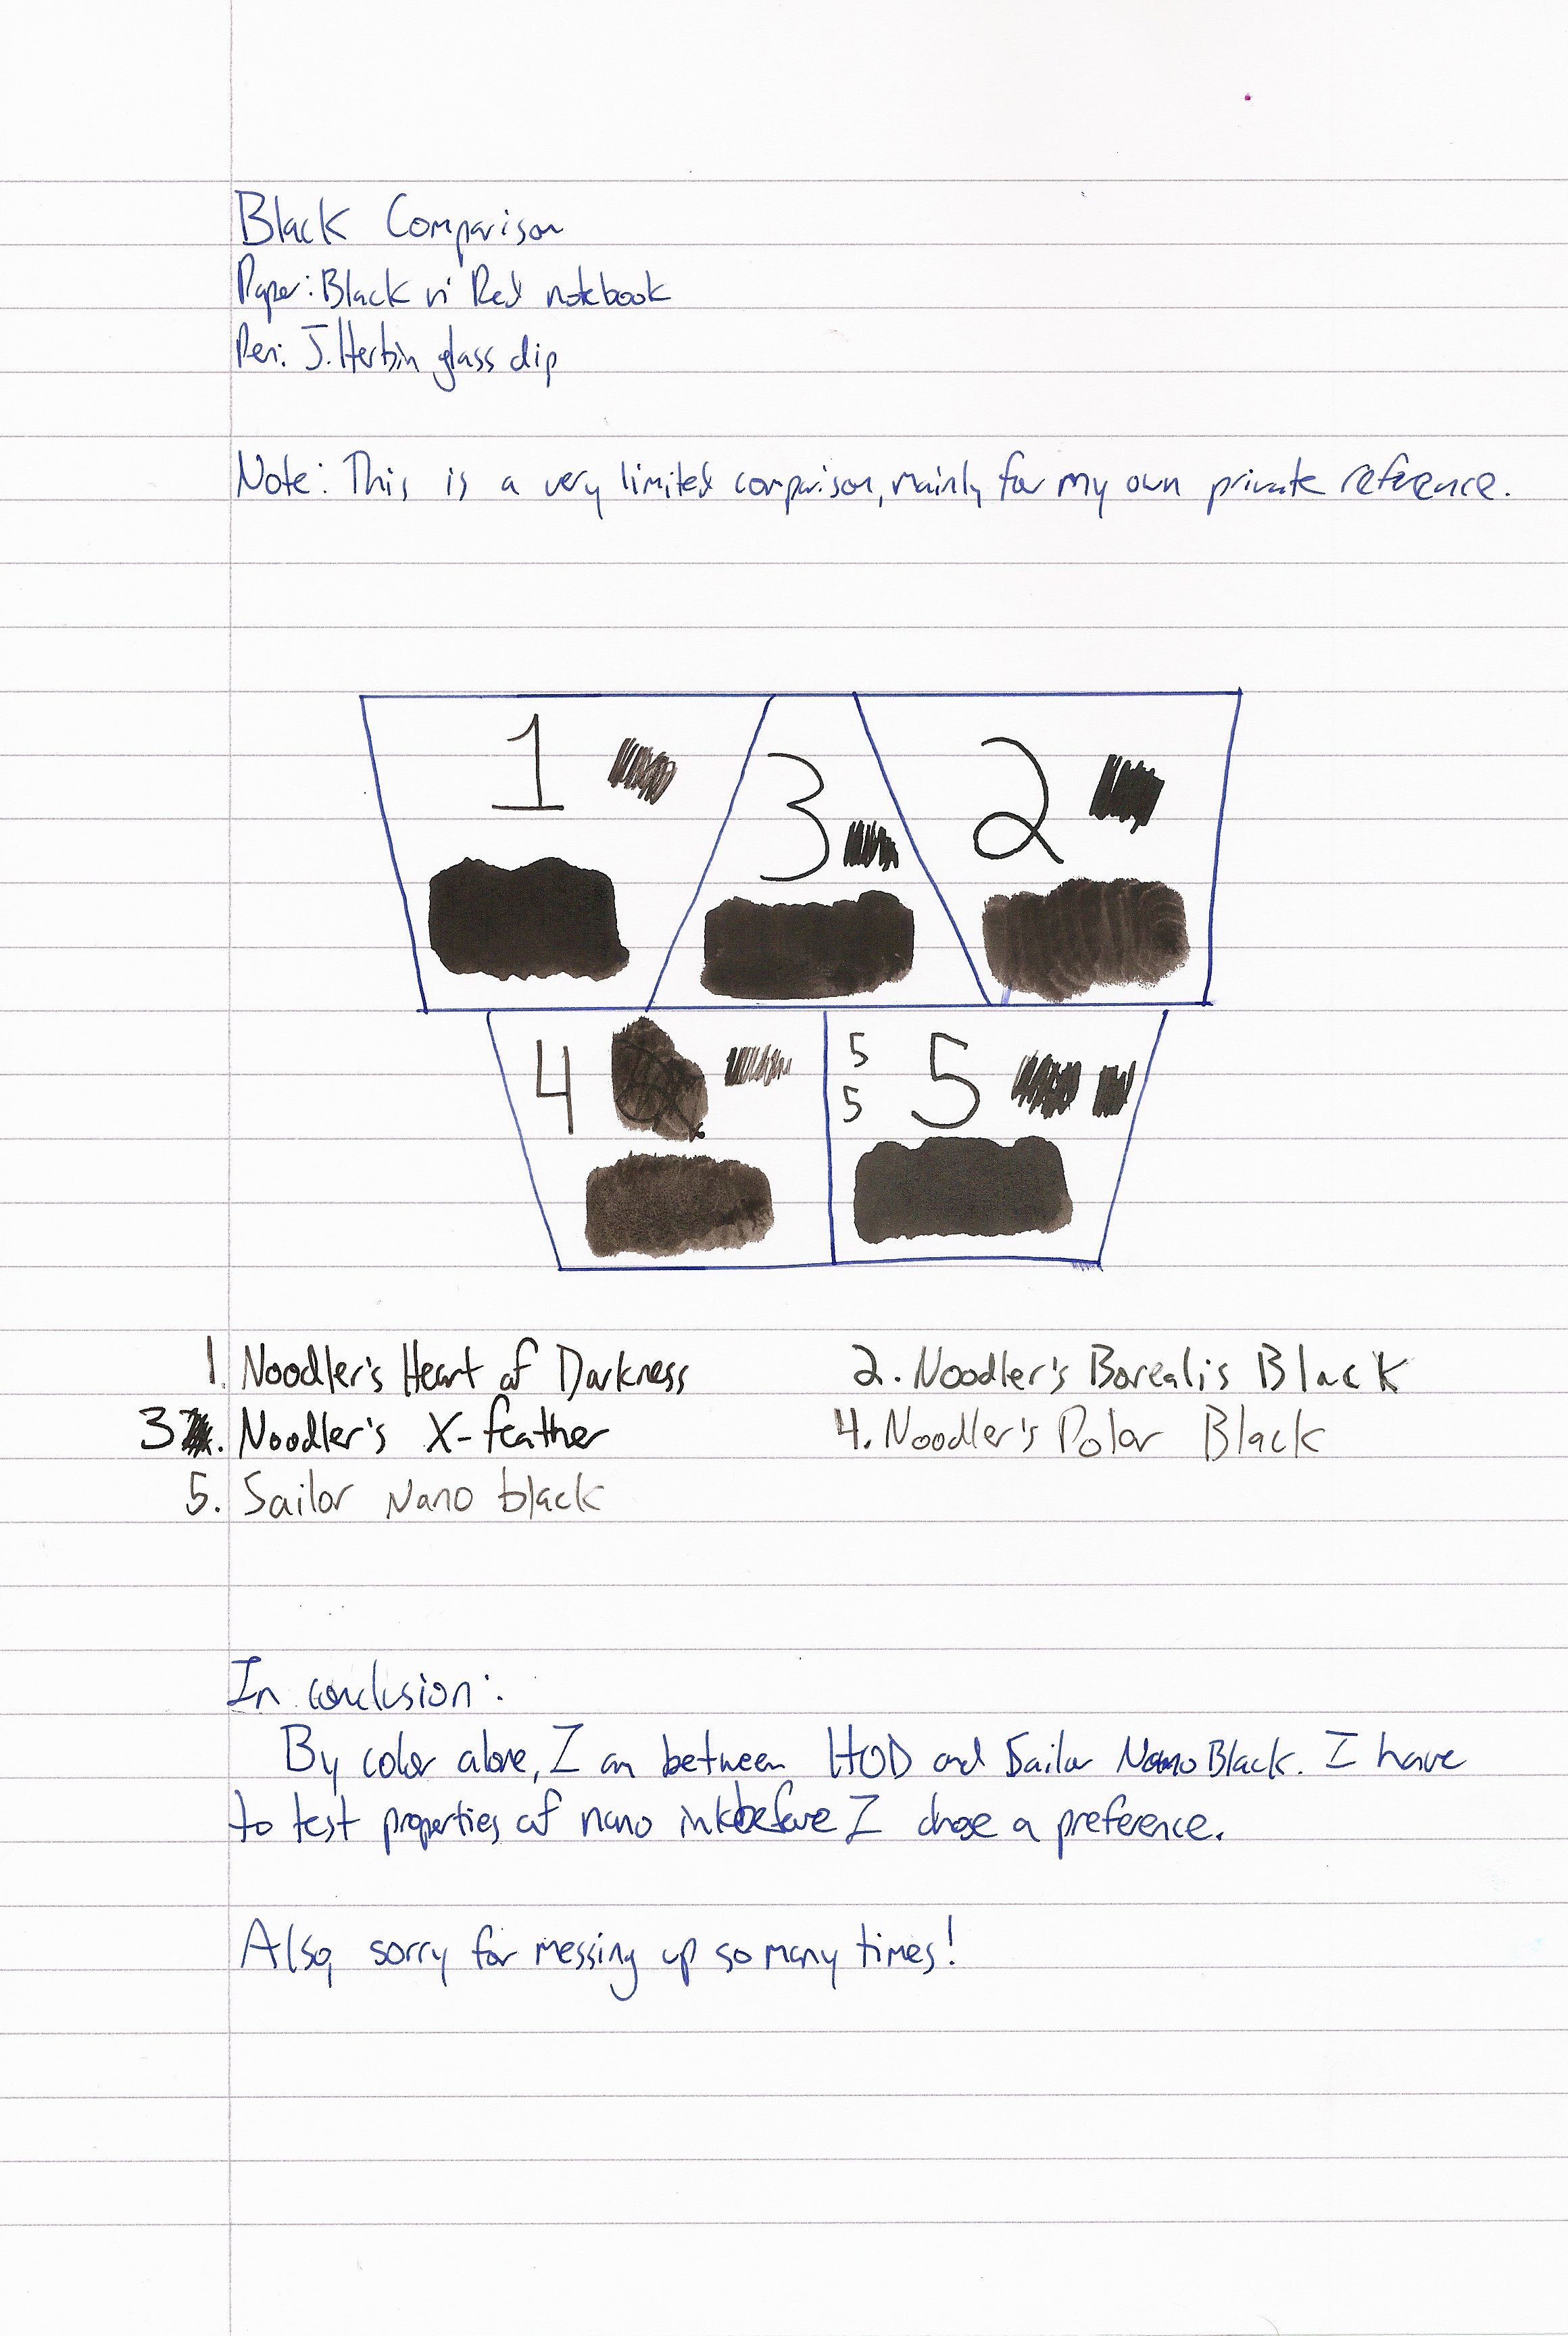 Black Comparison
Paper: Black n' Red notebook
Pen: J. Herbin glass dip
Note: This is a very limited comparison, mainly for my own private reference.
1
3
2
4
5
5
5
1. Noodler's Heart of Darkness
2. Noodler's Borealis Black
3. Noodler's X-feather
4. Noodler's Polar Black
5. Sailor Nano black
In conclusion:
By color alone, I am between HOD and Sailor Nano Black. I have
to test properties of nano ink before I chose a preference.
Also, sorry for messing up so many times!